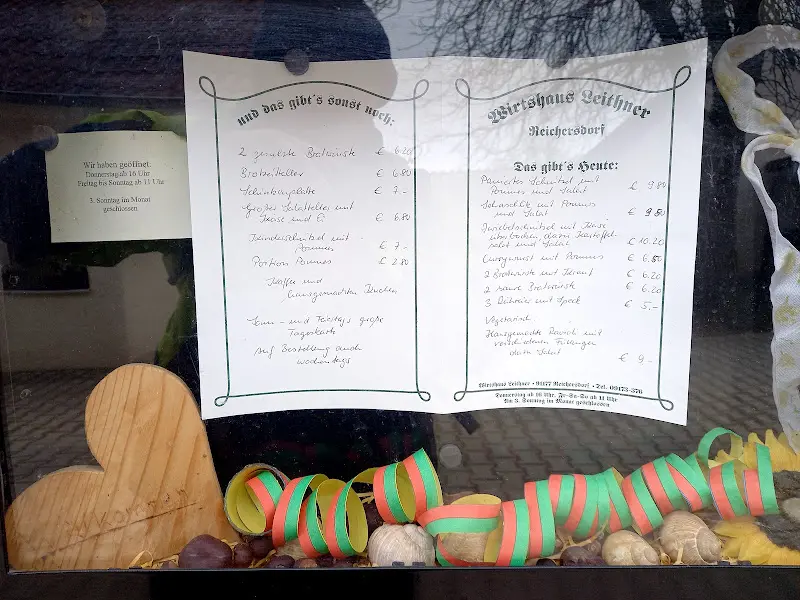 Wir haben geöffnet:
Donnerstag ab 16 Uhr
Freitag bis Sonntag ab 11 Uhr
3. Sonntag im Monat
geschlossen
und das gibt's sonst noch:
2 Bratwürste € 6.20
Brotzeitteller € 6.80
Schinkenplatte € 7.-
Großer Salatteller mit
Käse und Ei € 6.80
Kinderschnitzel mit
Pommes € 7.-
Portion Pommes € 2.80
Kaffee und
hausgemachten Kuchen
Sonn- und Feiertags große
Tageskarte
Auf Bestellung auch
wochentags
Wirtshaus Leithner
Reichersdorf
Das gibt's Heute:
Paniertes Schnitzel mit
Pommes und Salat € 9.80
Schaschlik mit Pommes
und Salat € 9.50
Zwiebelschnitzel mit Käse
überbacken, dazu Kartoffel-
salat und Salat € 10.20
Currywurst mit Pommes € 6.50
2 Bratwürste mit Kraut € 6.20
2 saure Bratwürste € 6.20
3 Rühreier mit Speck € 5,-
Vegetarisch
Hausgemachte Ravioli mit
verschiedenen Füllungen
dazu Salat € 9,-
Wirtshaus Leithner • 91177 Reichersdorf • Tel. 09173-376
Donnerstag ab 16 Uhr, Fr-Sa-So ab 11 Uhr
Am 3. Sonntag im Monat geschlossen
Willkommen